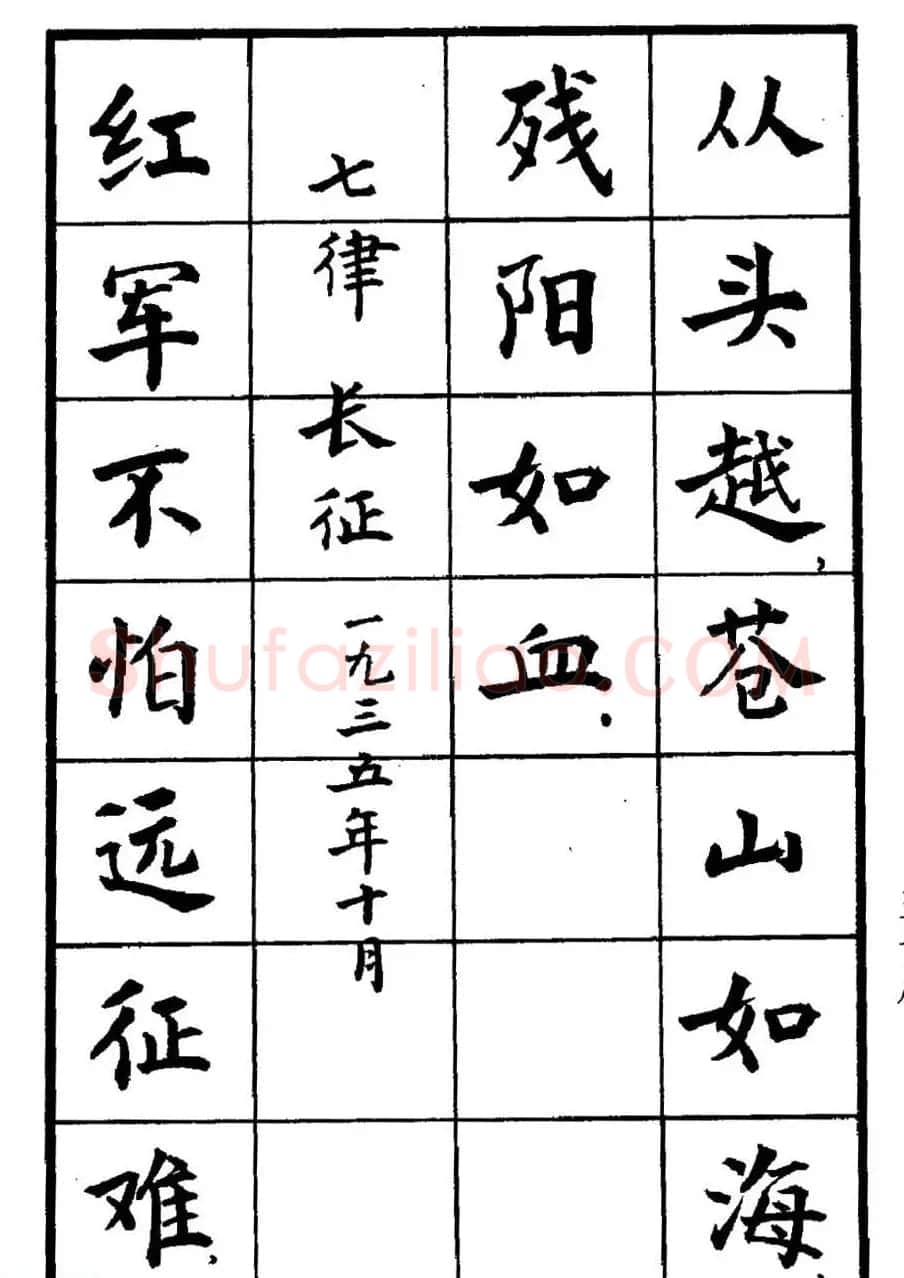 从头越，苍山如海，
残阳如血．
七律 长征 一九三五年十月
红军不怕远征难，
Shufaziliao.COM